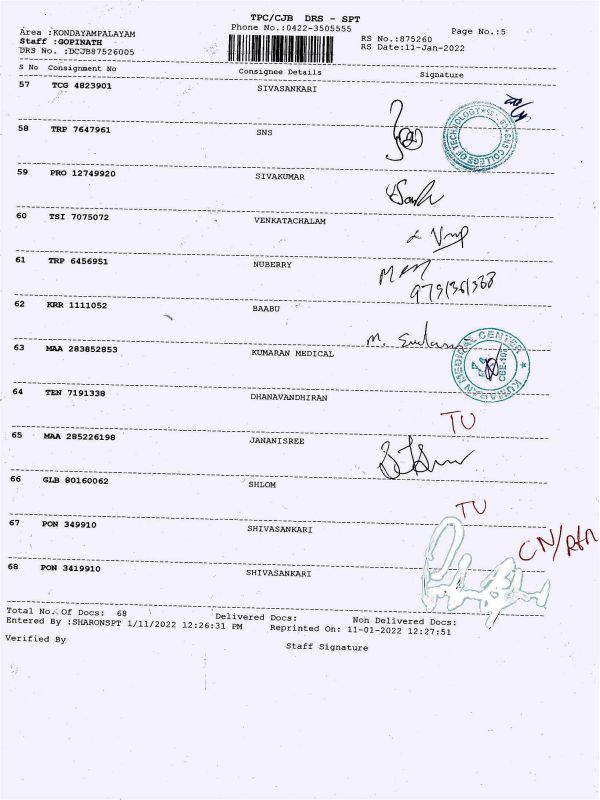 TPC/CJB DRS - SPT
Area :KONDAYAMPALAYAM Phone No.:0422-3505555 Page No.:5
Staff :GOPINATH RS No.:875260
DRS No. :DCJB87526005 RS Date:11-Jan-2022
S No Consignment No Consignee Details Signature
57 TCG 4823901 SIVASANKARI
58 TRP 7647961 SNS
SNS COLLEGE OF TECHNOLOGY
59 PRO 12749920 SIVAKUMAR
60 TSI 7075072 VENKATACHALAM
61 TRP 6456951 NUBERRY
62 KRR 1111052 BAABU
63 MAA 283852853 KUMARAN MEDICAL
KUMARAN MEDICAL CENTER
64 TEN 7191338 DHANAVANDHIRAN
TU
65 MAA 285226198 JANANISREE
66 GLB 80160062 SHLOM
TU
67 PON 349910 SHIVASANKARI
68 PON 3419910 SHIVASANKARI
Total No. Of Docs: 68 Delivered Docs: Non Delivered Docs:
Entered By :SHARONSPT 1/11/2022 12:26:31 PM Reprinted On: 11-01-2022 12:27:51
Verified By Staff Signature